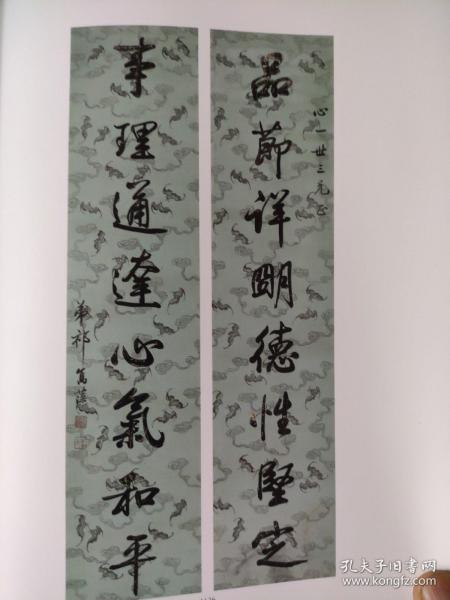 品節詳明德性堅定
心一世三兄正
事理通達心氣和平
弟祁寯藻
孔夫子旧书网
www.kongfz.com